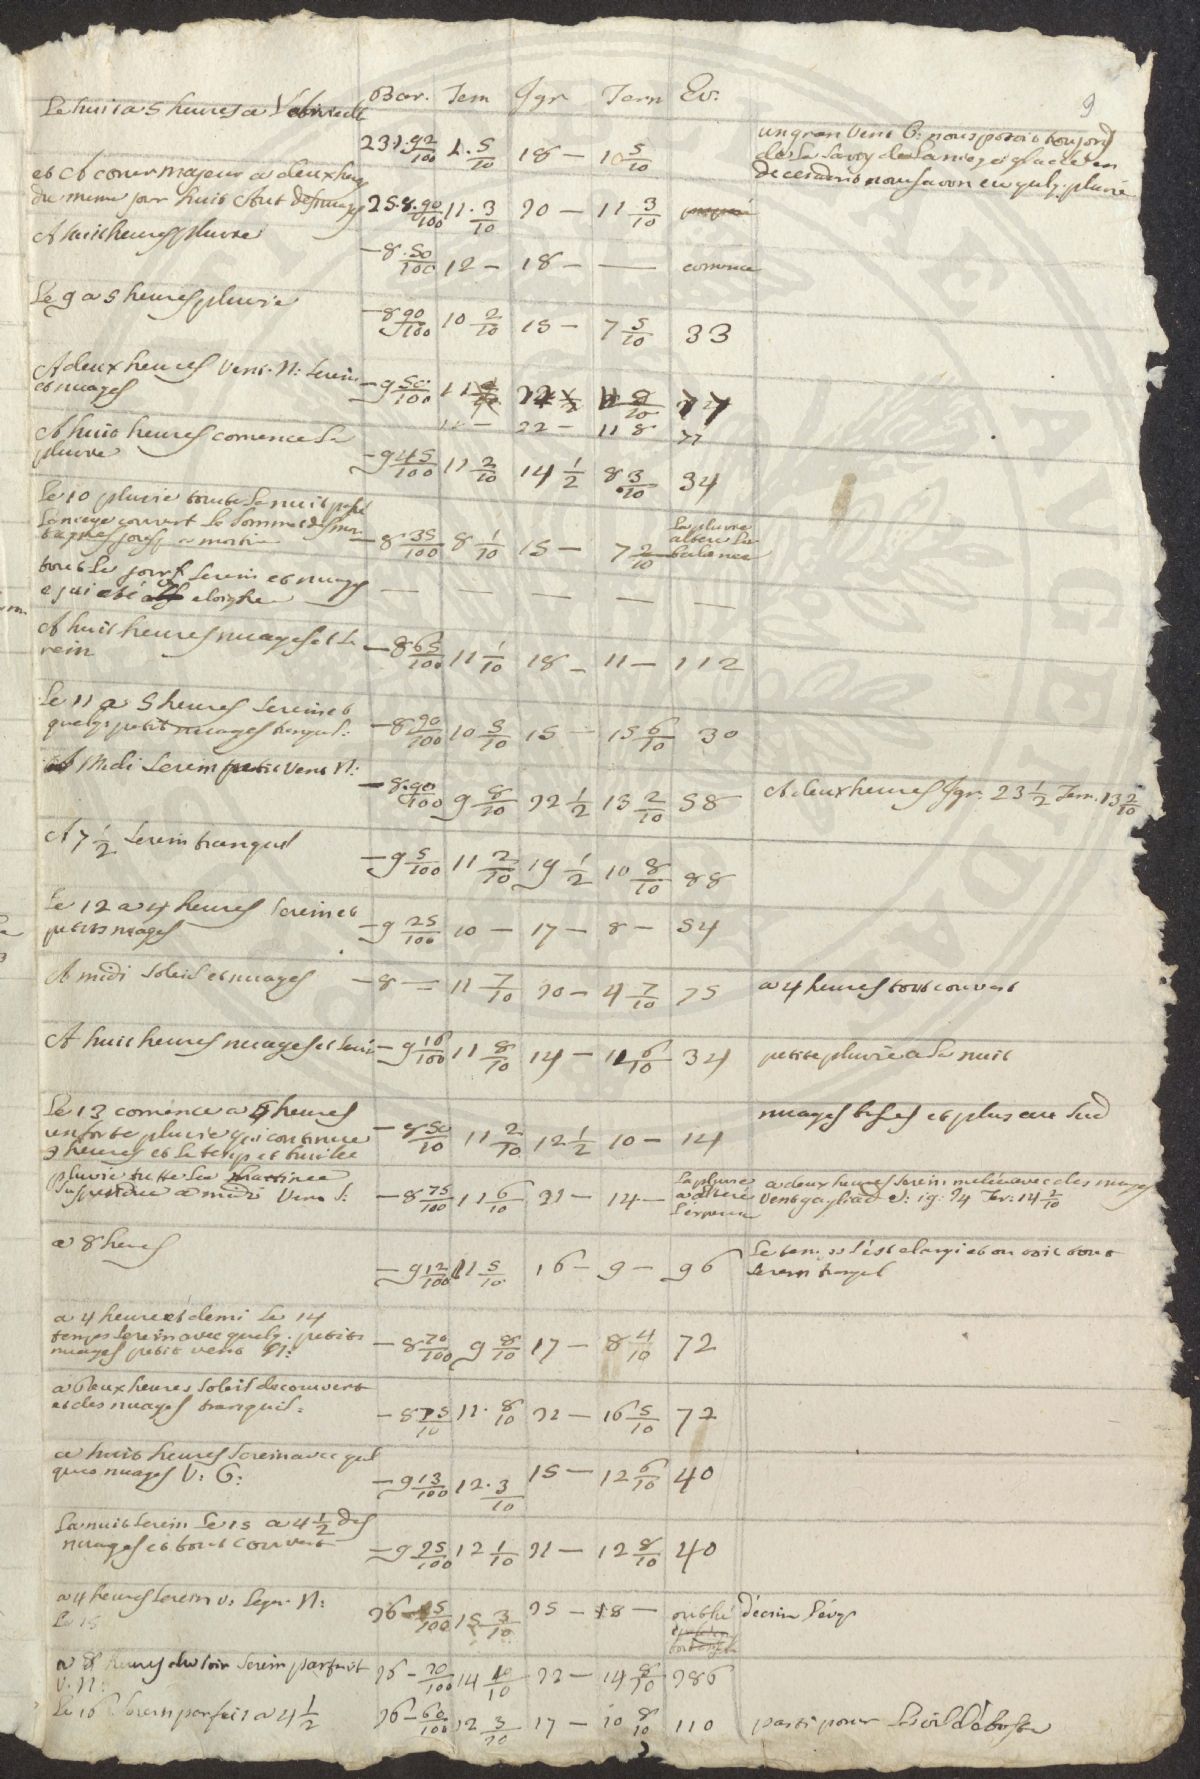 9
Bar. Tem Jgr Term Ev.
Le huit a 5 heures a
231.92/100 1.5/10 18 — 10 5/10
un gran vent G: nous toujord
de la
et A a deux heures
du meme jour huit Aout de nuages 258.90/100 11.3/10 20 — 11 3/10
A huit heures pluvie —8.50/100 12 — 18 — — comence
Le 9 a 5 heures pluvie —8 90/100 10 2/10 15 — 7 5/10 33
A deux heures vent. N: serein
et nuages —9 50/100 11
11 — 22 — 11 8 77
A huit heures comence la
pluvie —9 45/100 11 2/10 14 1/2 8 3/10 34
Le 10 pluvie toute la nuit
la neige couvert le sommet des
—8 35/100 8 1/10 15 — 7 2/10
la pluvie
altere la
balance
tout le jour serein et nuages
— — — — —
A huit heures nuages et se
rein —8 65/100 11 1/10 18 — 11 — 112
Le 11 a 5 heures serein et
quelqs petit nuages tranquil: —8 90/100 10 5/10 15 — 15 6/10 30
A Midi serein petit vent N: —8.90/100 9 8/10 22 1/2 13 2/10 58 A deux heures Jgr. 23 1/2 Term. 13 2/10
A 7 1/2 serein tranquil —9 5/100 11 2/10 19 1/2 10 8/10 88
Le 12 a 4 heures serein et
petits nuages —9 25/100 10 — 17 — 8 — 54
A midi soleil et nuages —8 — 11 7/10 20 — 4 7/10 75 a 4 heures tout couvert
A huit heures nuages et serein —9 16/100 11 8/10 14 — 11 6/10 34 petite pluvie a la nuit
Le 13 comence a heures
un forte pluvie qui continue —8 50/10 11 2/10 12 1/2 10 — 14 nuages et plus au sud
3 heures et le temp et
pluvie tutte la martinee
a midi vent S: —8 75/100 11 6/10 21 — 14 —
la pluvie
a alteré
a deux heures serein melé avec des nuages
vent S: ig: 24 Ter: 14 2/10
a 8 heures —9 12/100 11 5/10 16 — 9 — 96
Le tems s'est elargi et on voit tout
serein
a 4 heures et demi Le 14
temps serein avec quelq. petits
nuages petit vent N: —8 70/100 9 8/10 17 — 8 4/10 72
a deux heures soleil decouvert
et des nuages tranquil: —8 75/10 11.8/10 21 — 16 5/10 72
a huit heures serein avec quel
ques nuages V: G: —9 13/100 12.3/10 15 — 12 6/10 40
La nuit serein Le 15 a 4 1/2 des
nuages et tout couvert —9 25/100 12 1/10 21 — 12 8/10 40
a 4 heures serein v: leger. N:
Le 15 26 — 15/100 15 3/10 25 — 18 — oublié d'ecrire l'evap
a 8 heures du soir serein parfait
V. N: 26 — 20/100 14 10/10 22 — 14 8/10 286
Le 16 serein parfait a 4 1/2 26 — 60/100 12 3/10 17 — 10 8/10 110 parti pour